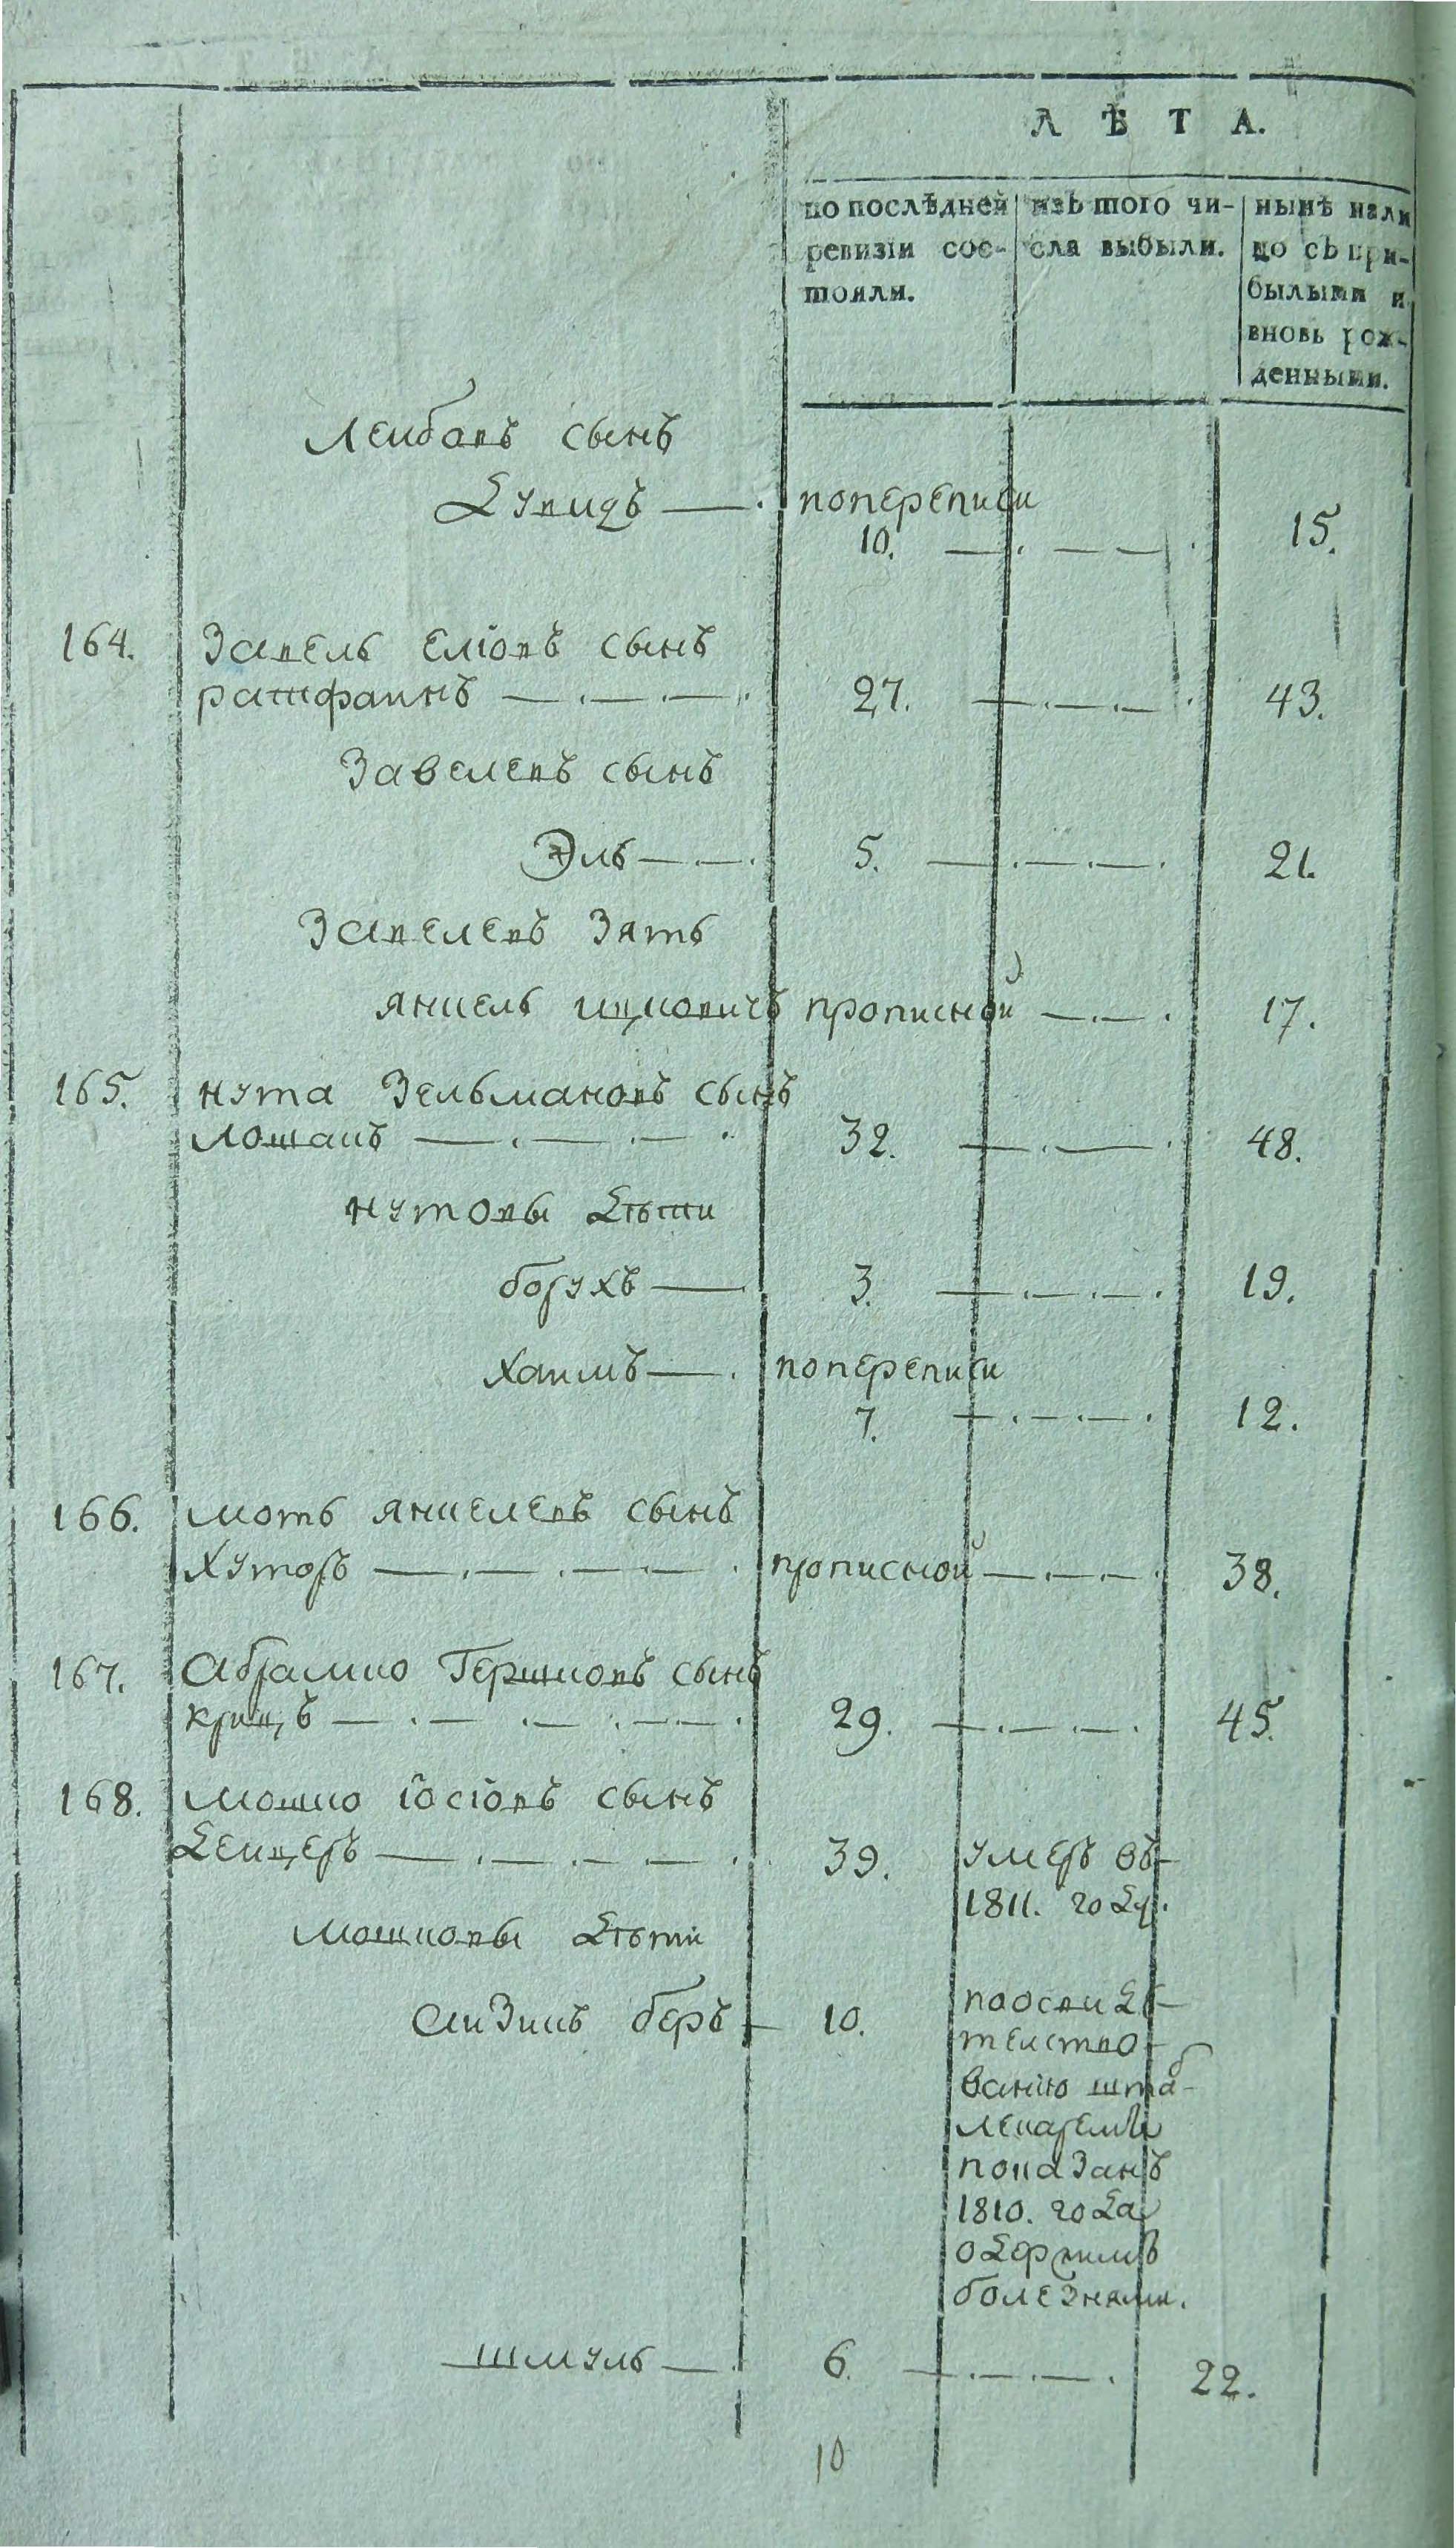 ЛѢТА.
по послѣдней ревизіи состояли.
изъ того числа выбыли.
нынѣ нали цо съ прибылыми и вновь рожденными.
Лейбовъ сынъ
Давидъ — попереписи
10. 15.
164. Завель еліовъ сынъ
ратфаинъ 27. 43.
Завелевъ сынъ
Эль 5. 21.
Завелевъ Зять
янкель ицковичъ прописной 17.
165. нута Зельмановъ сынъ
32. 48.
нутовы дѣти
борухъ 3. 19.
хаимъ попереписи
7. 12.
166. моть янкелевъ сынъ
хуторъ прописной 38.
167. Абрамко Гершковъ сынъ
крицъ 29. 45.
168. мошко іосіовъ сынъ
Дейцеръ 39. умеръ въ
1811. году.
мошковы дѣти
Айзикъ беръ 10. по освидѣ-
телство-
ванію штаб
лекаремъ
показанъ
1810. года
одержимъ
болезнями.
шмуль 6. 22.
10